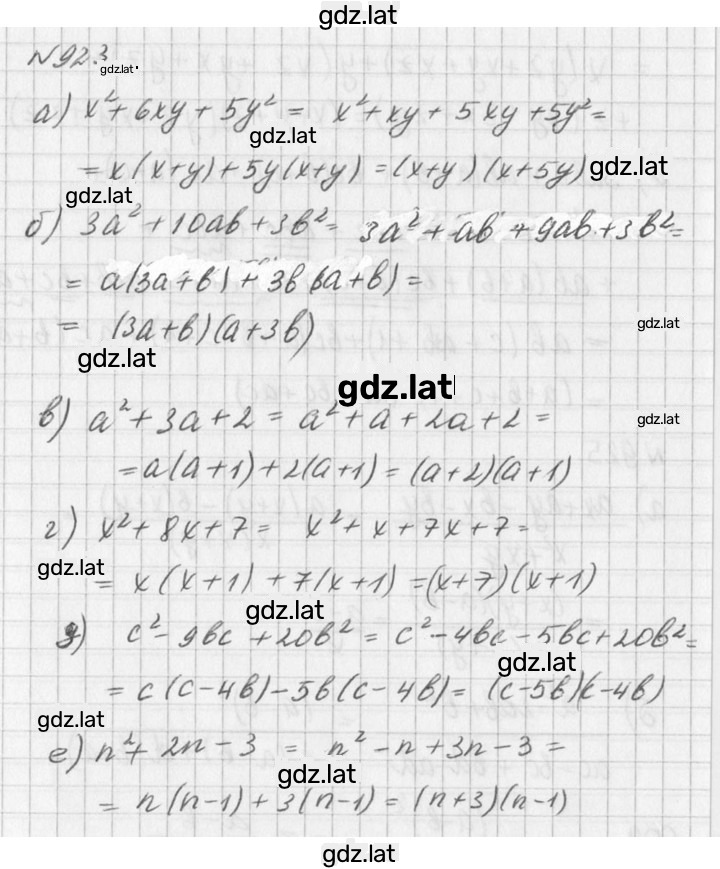 gdz.lat
№923
gdz.lat.
а) x²+6xy+5y² = x²+xy+5xy+5y²=
gdz.lat
= x(x+y)+5y(x+y) = (x+y)(x+5y) gdz.lat
gdz.lat
б) 3a²+10ab+3b²= 3a²+ab+9ab+3b²=
= a(3a+b)+3b(3a+b) =
= (3a+b)(a+3b)
gdz.lat
gdz.lat
gdz.lat
в) a²+3a+2 = a²+a+2a+2 =
gdz.lat
=a(a+1)+2(a+1) = (a+2)(a+1)
г) x²+8x+7 = x²+x+7x+7=
gdz.lat
= x(x+1)+7(x+1) =(x+7)(x+1)
gdz.lat
д) c²-9bc+20b² = c²-4bc-5bc+20b²=
gdz.lat
= c(c-4b)-5b(c-4b)= (c-5b)(c-4b)
gdz.lat
е) n²+2n-3 = n²-n+3n-3 =
gdz.lat
= n(n-1)+3(n-1) = (n+3)(n-1)
gdz.lat